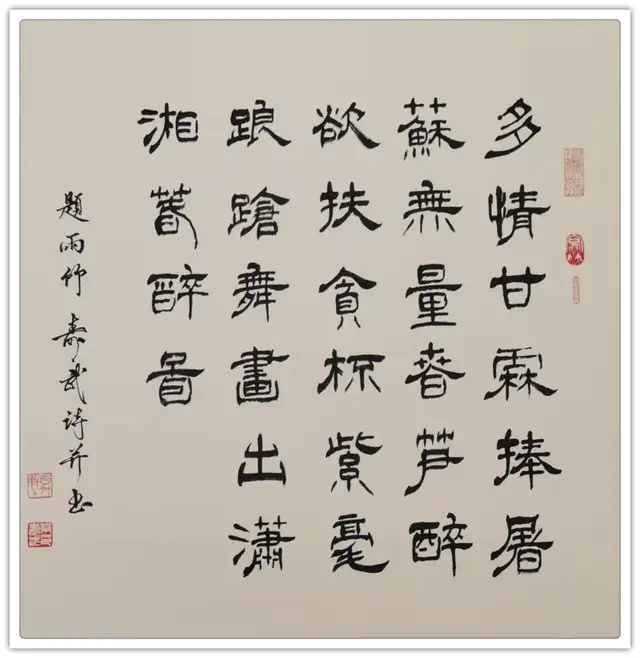 多情甘霖捧暑
蘇無量春笋醉
欲扶貪杯紫毫
踉蹌舞畫出瀟
湘萅醉啚
題雨竹 壽武詩并书